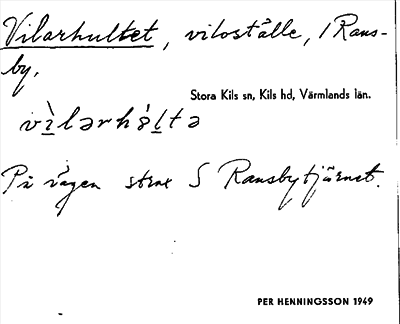 Vilarhultet, viloställe, i Rans-
by.
Stora Kils sn, Kils hd, Värmlands län.
vìlərhòltə
På vägen strax S Ransbytjärnet.
PER HENNINGSSON 1949